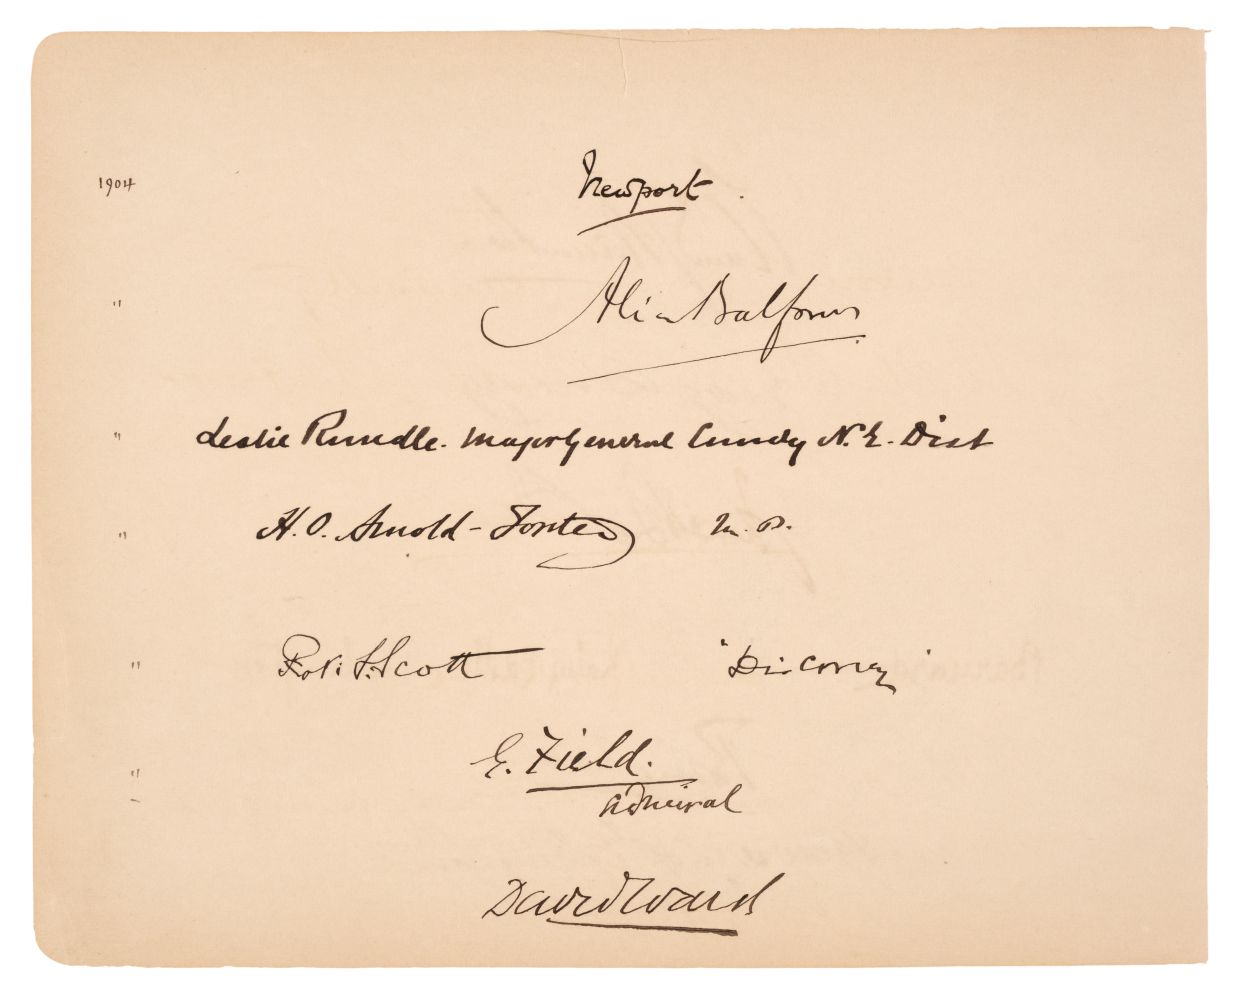 1904 Newport.
" Alice Balfour
" Leslie Rundle. Major General Commdg N.E. Dist
" H. O. Arnold-Forster M. P.
" Robt. F. Scott "Discovery"
" E. Field.
Admiral
David Ward